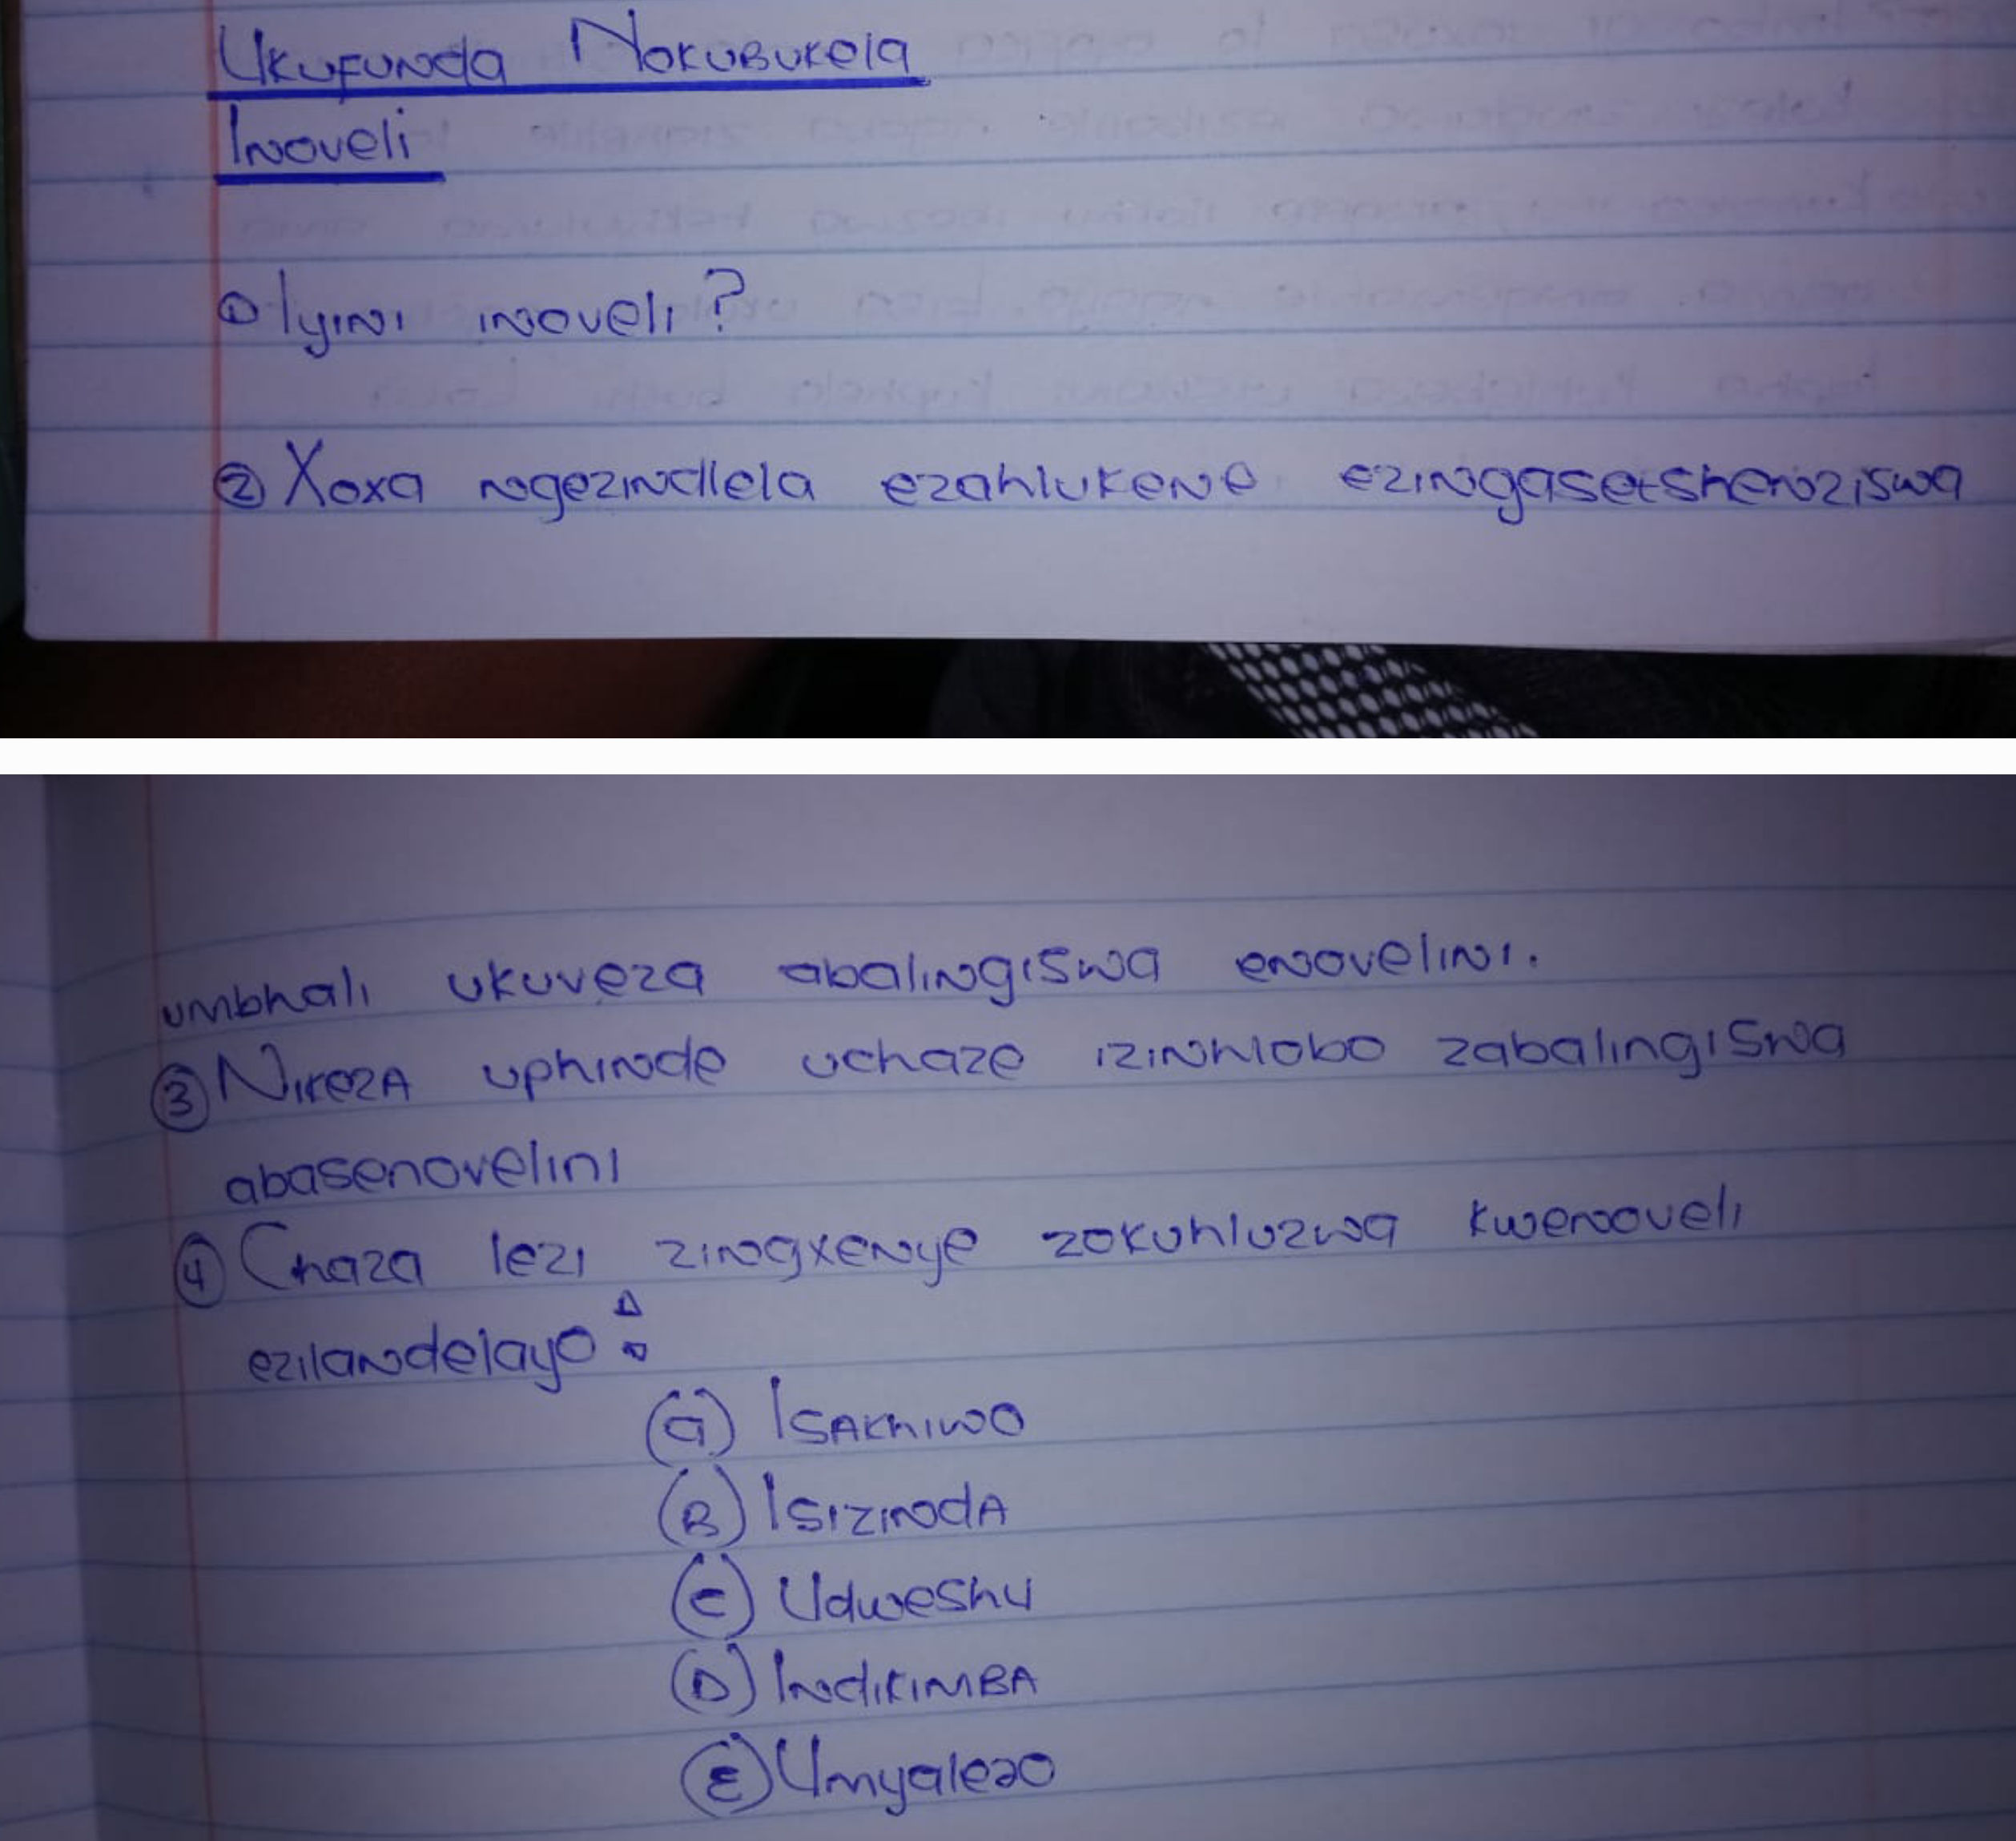 Ukufunda Nokubukela
Inoveli
① Iyini inoveli?
② Xoxa ngezindlela ezahlukene ezingasetshenziswa
umbhali ukuveza abalingiswa enovelini.
③ Nikeza uphinde uchaze izinhlobo zabalingiswa
abasenovelini
④ Chaza lezi zingxenye zokuhluzwa kwenoveli
ezilandelayo:
(a) Isakhiwo
(B) Isizinda
(C) Udweshu
(D) Indikimba
(E) Umyalezo